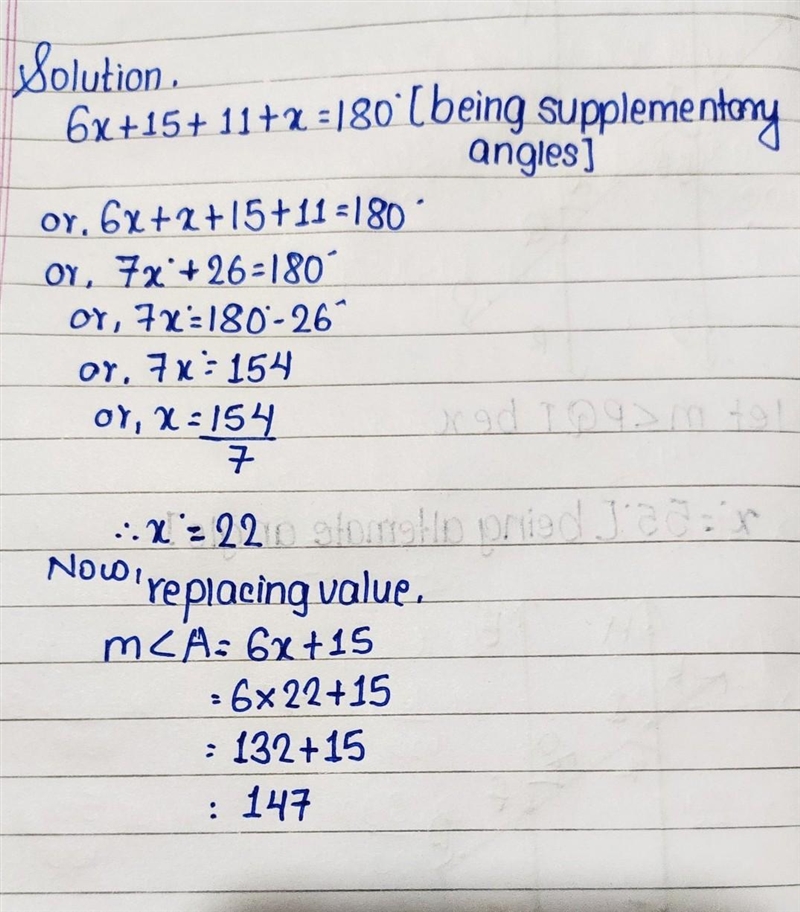 Solution.
6x+15+11+x=180° [being supplementary
angles]
or. 6x+x+15+11=180°
or, 7x°+26=180°
or, 7x°=180°-26°
or. 7x°=154
or, x=154
7
∴x°=22
Now, replacing value.
m<A= 6x+15
=6×22+15
= 132+15
: 147
let m<PQT be x
x°=55°[being alternate